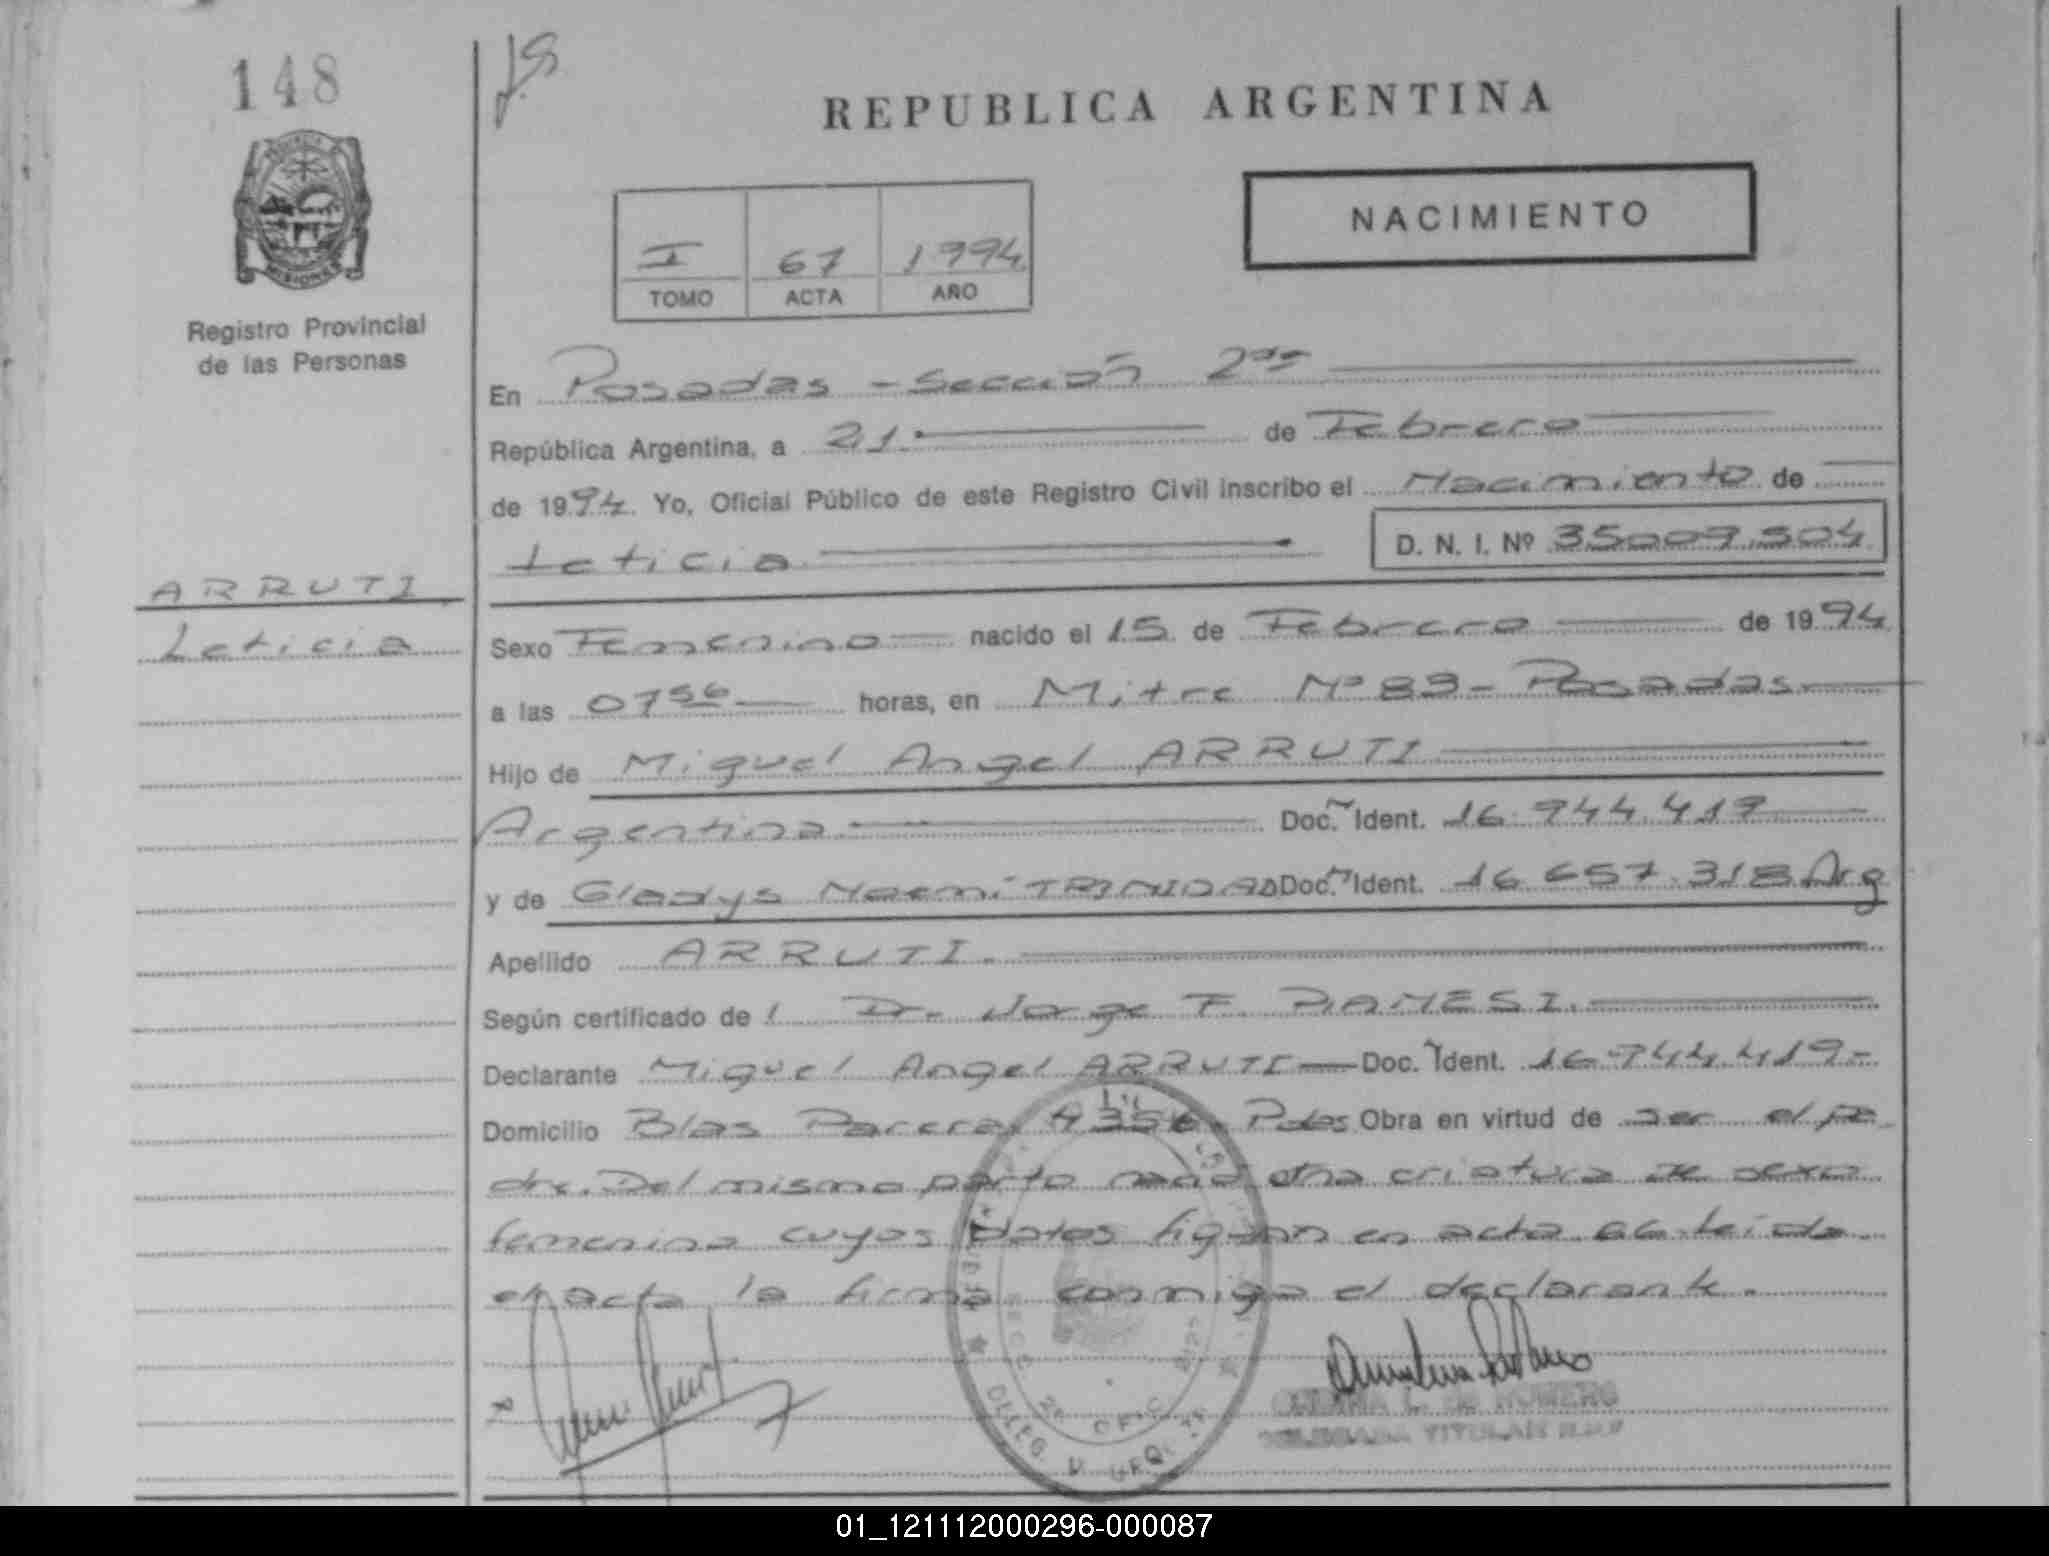 148
REPUBLICA ARGENTINA
NACIMIENTO
I 67 1994
TOMO ACTA AÑO
MISIONES
Registro Provincial
de las Personas
En Posadas - Sección 2da
República Argentina, a 21 de Febrero
de 1994. Yo, Oficial Público de este Registro Civil inscribo el Nacimiento de
Leticia D. N. I. Nº 35009504
ARRUTI
Leticia
Sexo Femenino nacido el 15 de Febrero de 1994
a las 07 56 horas, en Mitre Nº 89 - Posadas
Hijo de Miguel Angel ARRUTI
Argentina Doc. Ident. 16.744.419
y de Gladys Noemí TRINIDAD Doc. Ident. 16 657.318 Arg
Apellido ARRUTI.
Según certificado de l Dr. Jorge F. PIAMESI.
Declarante Miguel Angel ARRUTI Doc. Ident. 16.744.419-
Domicilio Blas Parera 4356. Pdas Obra en virtud de ser el pa
dre. Del mismo parto nació otra criatura de sexo
femenino cuyos datos figuran en acta 66. Leída
el acta la firma conmigo el declarante.
SECC 2ª OFIC
DELEGADA TITULAR R.P.P
01_121112000296-000087